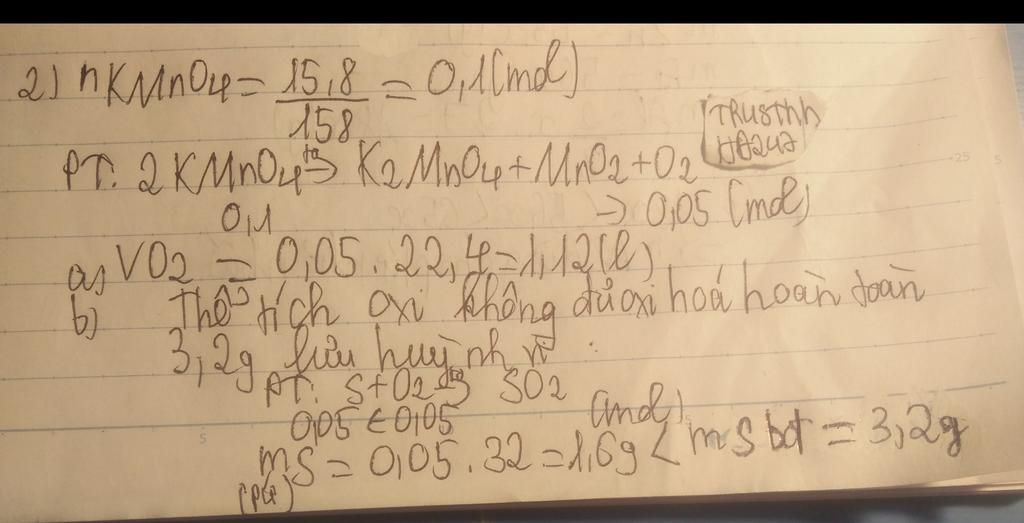 2) nKMnO4 = 15,8 / 158 = 0,1 (mol)
TRUSTnh
HB247
PT: 2KMnO4 to→ K2MnO4 + MnO2 + O2
0,1 → 0,05 (mol)
a) VO2 = 0,05 . 22,4 = 1,12 (l)
b) Thể tích oxi không đủ oxi hoá hoàn toàn
3,2g lưu huỳnh vì :
PT: S + O2 to→ SO2
0,05 < 0,05 (mol)
mS = 0,05 . 32 = 1,6g < mS bđ = 3,2g
(pứ)